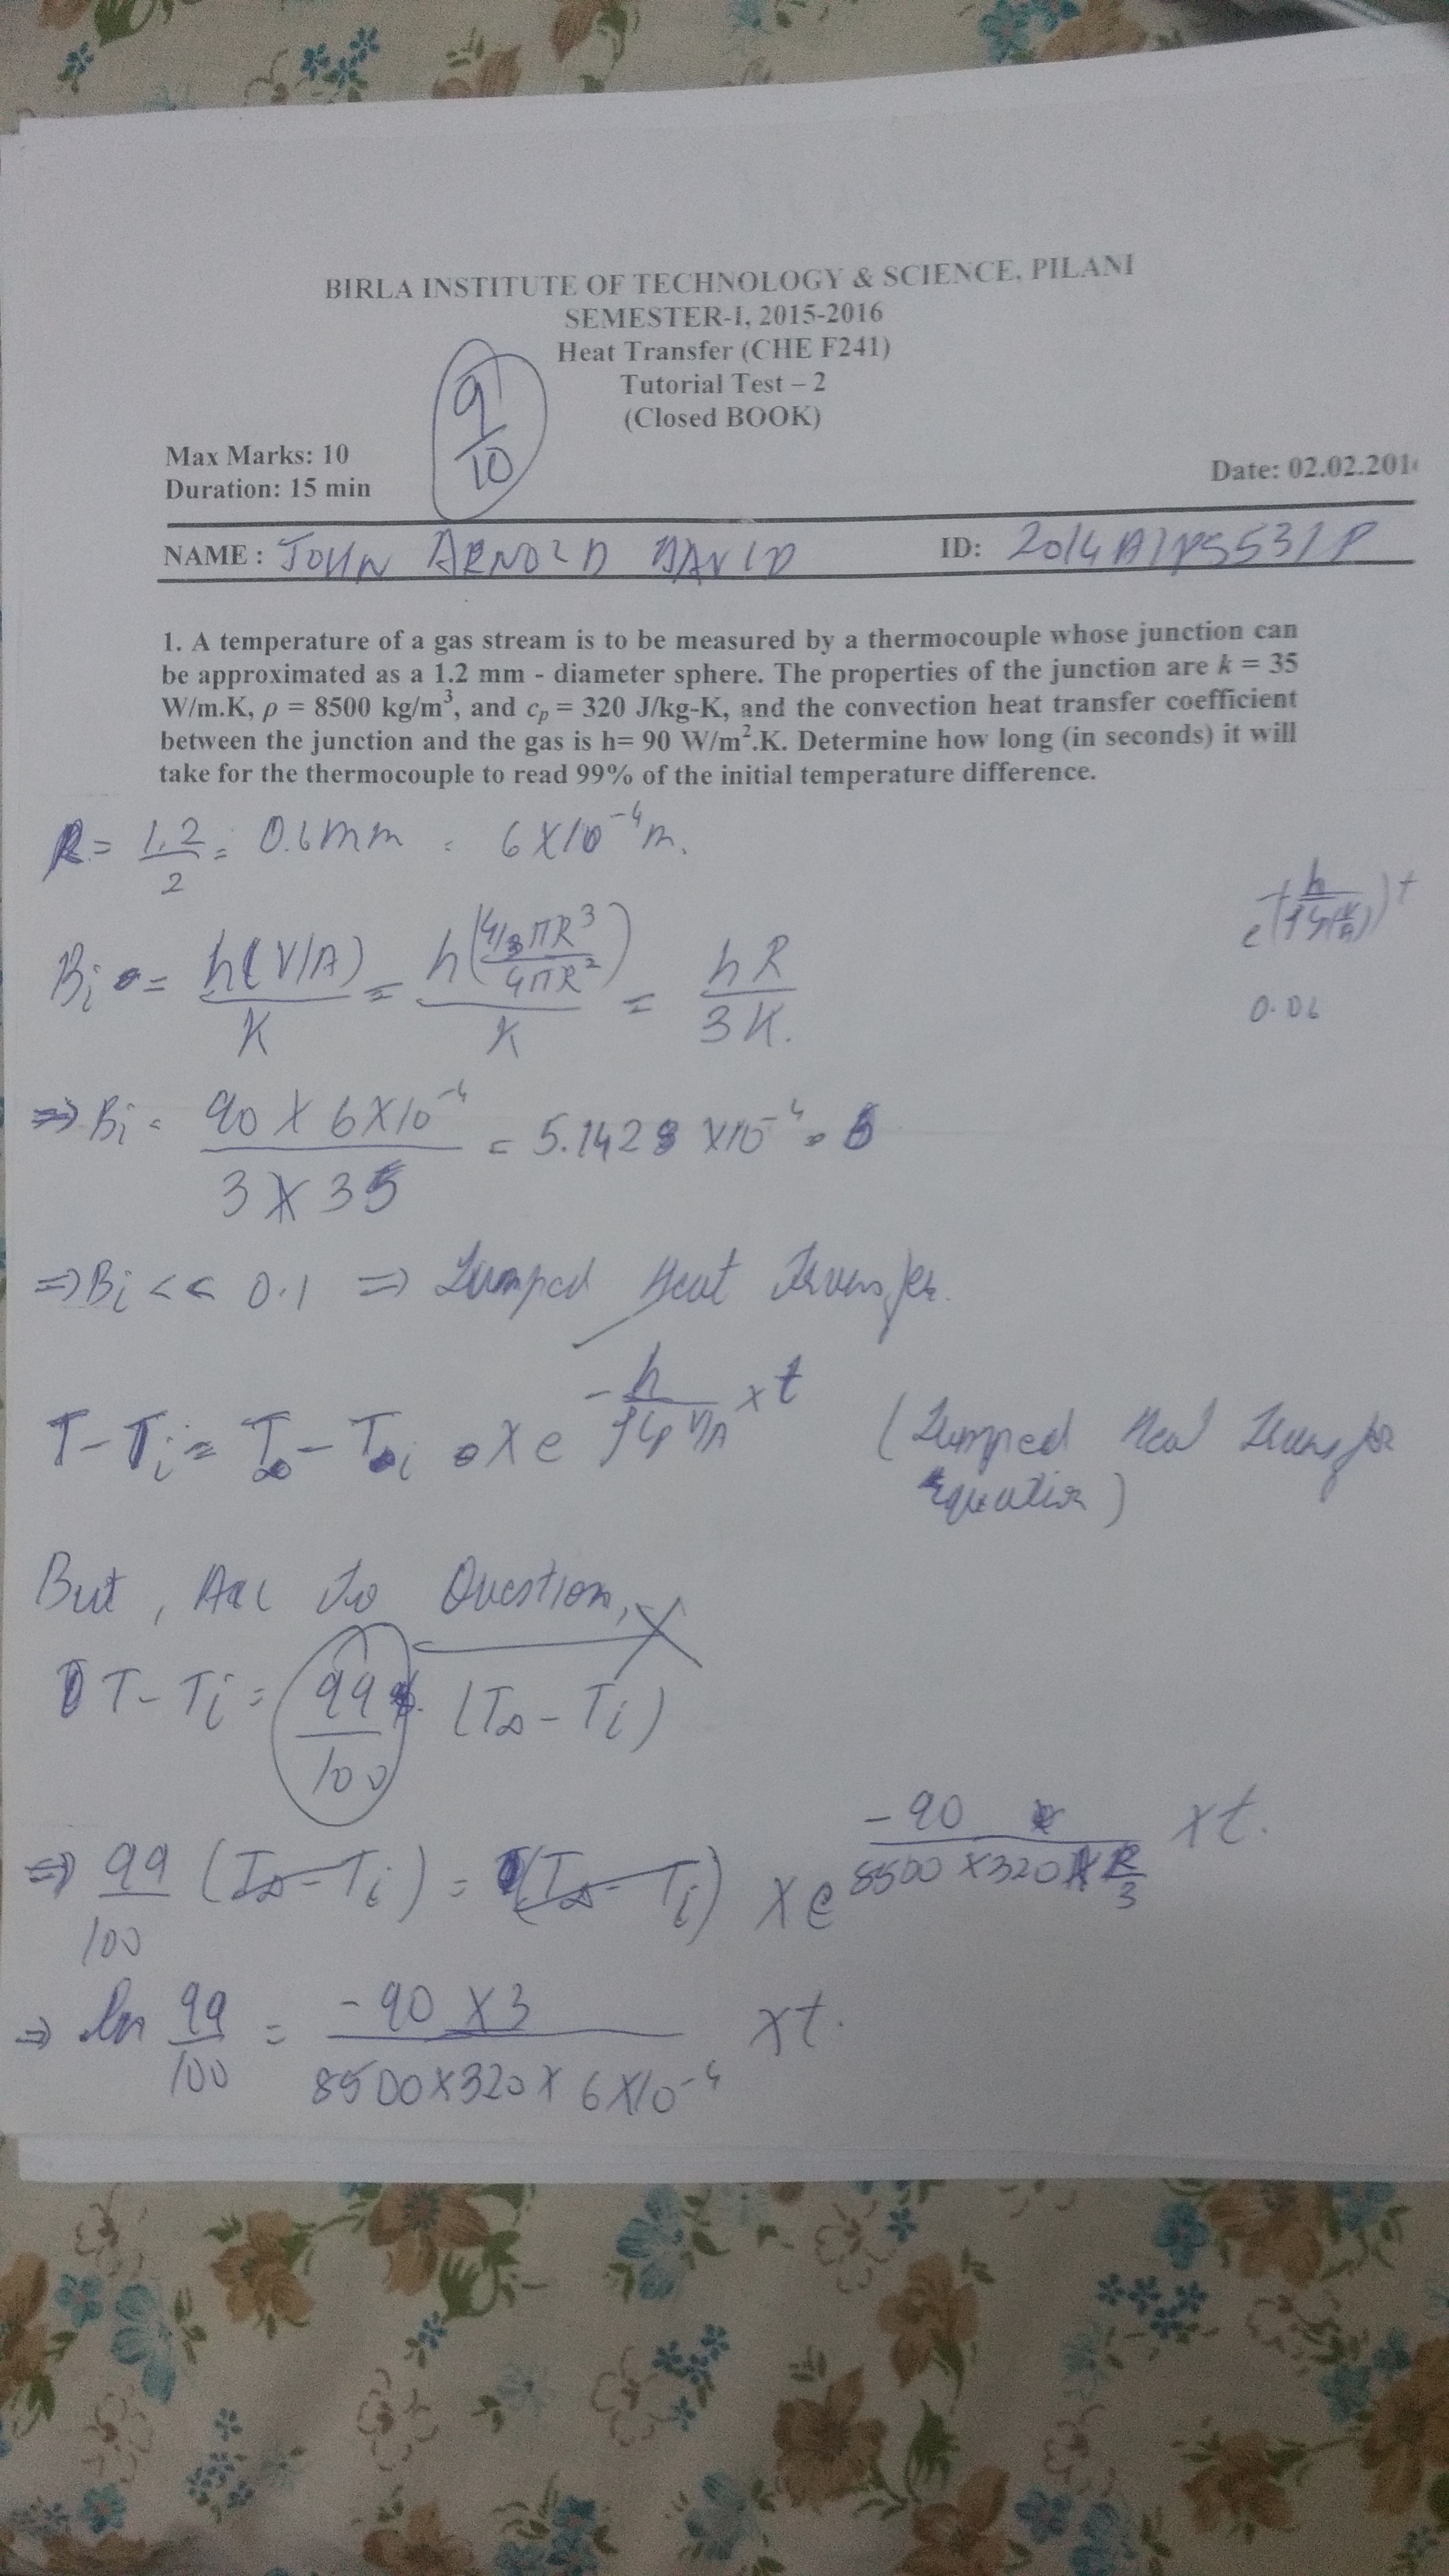 BIRLA INSTITUTE OF TECHNOLOGY & SCIENCE, PILANI
SEMESTER-I, 2015-2016
Heat Transfer (CHE F241)
Tutorial Test – 2
(Closed BOOK)
9/10
Max Marks: 10
Duration: 15 min
Date: 02.02.201
NAME : JOHN ARNOLD DAVID ID: 2014A1PS531P
1. A temperature of a gas stream is to be measured by a thermocouple whose junction can
be approximated as a 1.2 mm - diameter sphere. The properties of the junction are k = 35
W/m.K, ρ = 8500 kg/m³, and cp = 320 J/kg-K, and the convection heat transfer coefficient
between the junction and the gas is h= 90 W/m².K. Determine how long (in seconds) it will
take for the thermocouple to read 99% of the initial temperature difference.
R = 1.2/2 = 0.6mm = 6 X 10⁻⁴ m.
e^-(h/ρCp(V/A))t
0.06
Bi = h(V/A)/K = h(4/3 πR³/4πR²)/K = hR/3K.
⇒ Bi = 90 X 6 X 10⁻⁴/3 X 35 = 5.1428 X 10⁻⁴
⇒ Bi << 0.1 ⇒ Lumped Heat Transfer.
T - Ti = T∞ - Ti X e^-h/ρCp V/A x t (Lumped Heat Transfer
Equation)
But, Acc to Question,
T - Ti = 99/100 (T∞ - Ti)
⇒ 99/100 (T∞ - Ti) = (T∞ - Ti) X e^-90/8500 X 320 X R/3 x t.
⇒ ln 99/100 = -90 X 3/8500 X 320 X 6 X 10⁻⁴ x t.